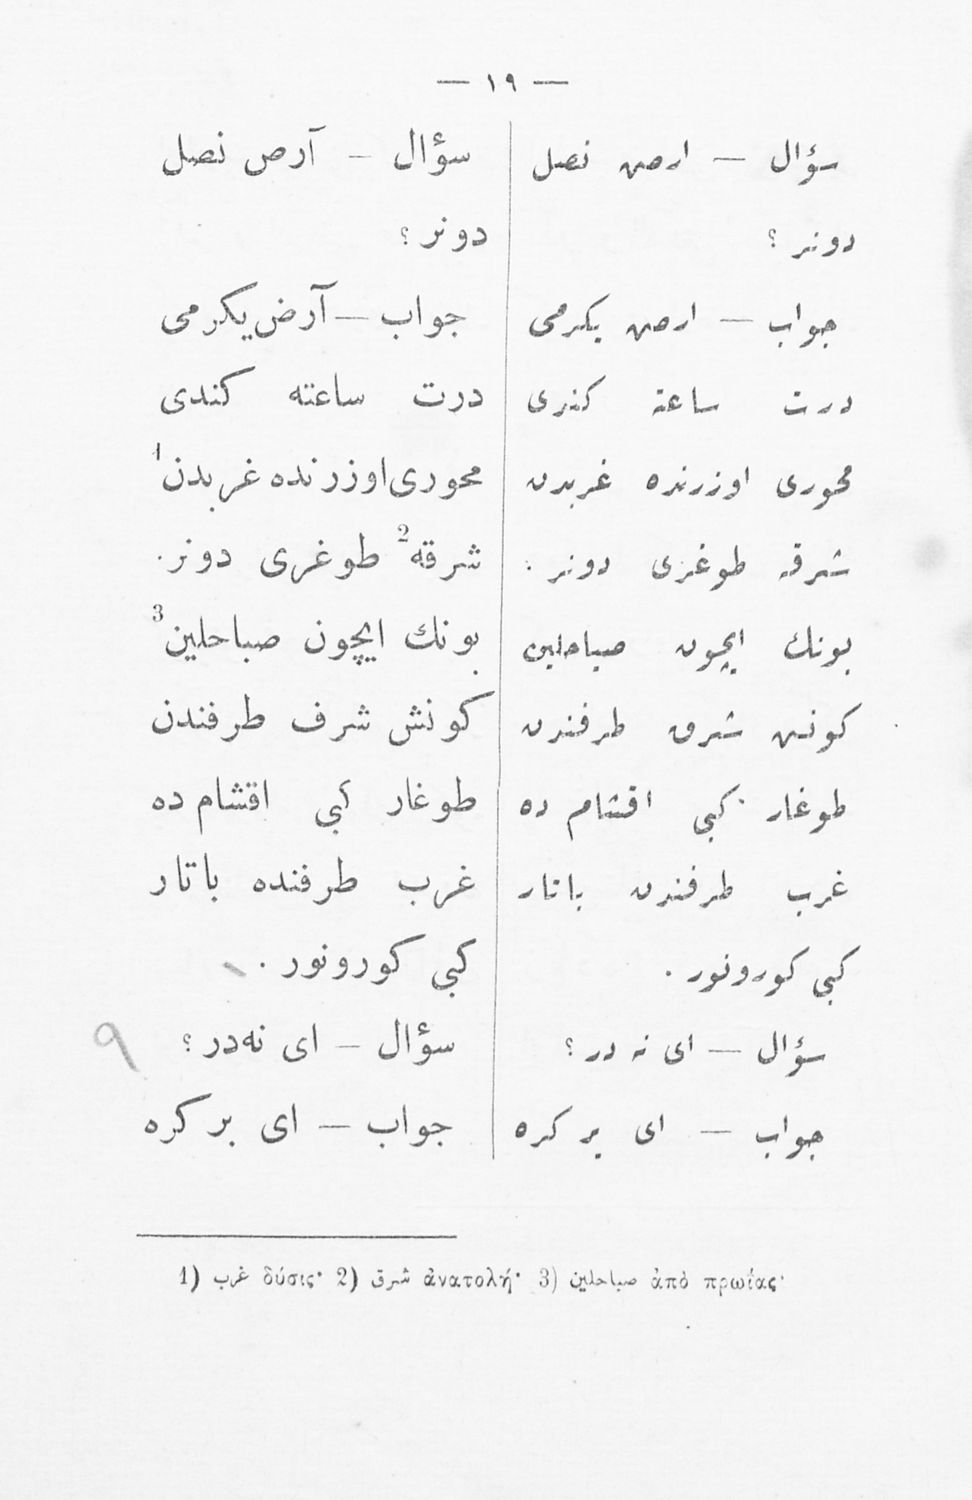 — ١٩ —
سؤال — ارض نصل
دونر ؟
جواب — ارض یکرمی
درت ساعته کندی
محوری اوزرنده غربدن
شرقه طوغری دونر .
بونك ایچون صباحلین
کونش شرق طرفندن
طوغار کبی اقشام ده
غرب طرفندن باتار
کبی کورونور .
سؤال — ای نه در ؟
جواب — ای بر کره
سؤال — آرص نصل
دونر ؟
جواب — آرض یکرمی
درت ساعته کندی
محوری اوزرنده غربدن1
شرقه2 طوغری دونر .
بونك ایچون صباحلین3
کونش شرف طرفندن
طوغار کبی اقشام ده
غرب طرفنده باتار
کبی کورونور .
سؤال — ای نه‌در ؟
جواب — ای بر کره
1) غرب δύσις· 2) شرق ἀνατολή· 3) صباحلین ἀπὸ πρωΐας·